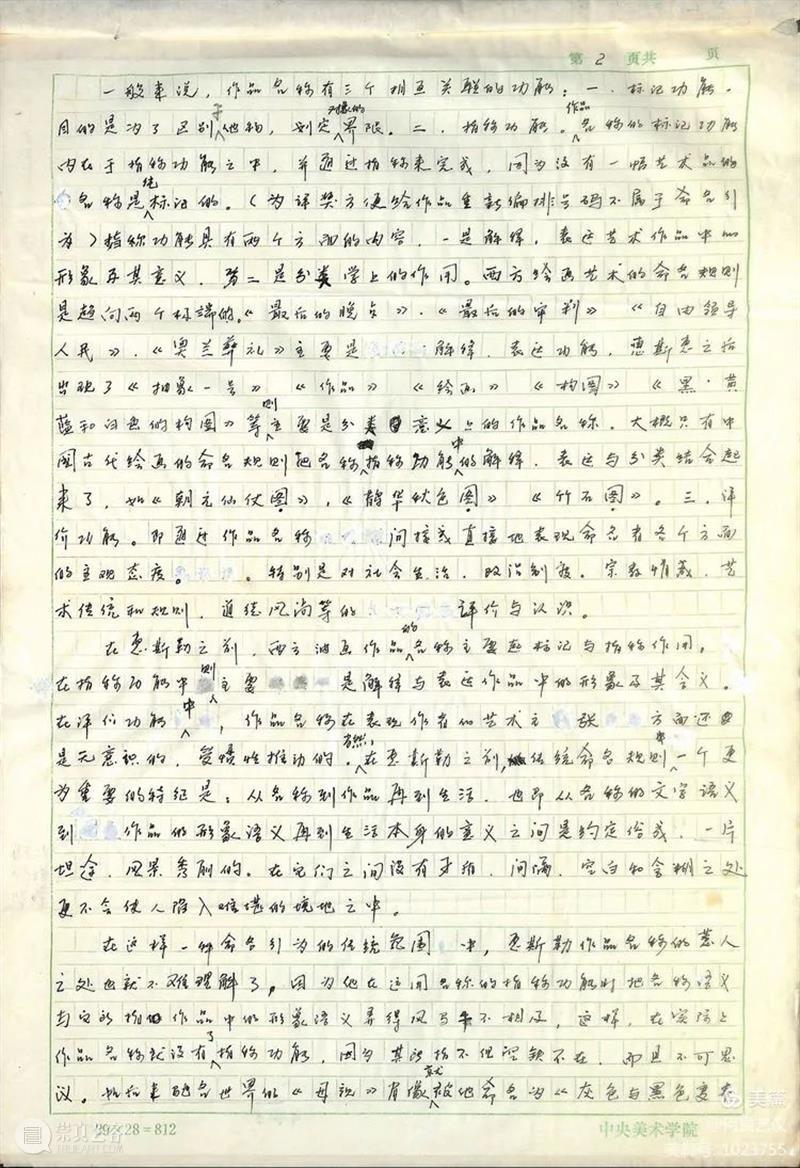 第 2 页共 页
一般来说，作品名称有三个相互关联的功能：一、标记功能。
目的是为了区别于他物，划定对象的界限。二、指称功能。作品名称的标记功能
内在于指称功能之中，并通过指称来完成，因为没有一幅艺术品的
名称是纯标记的。（为评奖方便给作品重新编排号码不属于命名行
为）指称功能具有两个方面的内容，一是解释，表达艺术作品中的
形象及其意义，第二是分类学上的作用。西方绘画艺术的命名规则
是趋向两个极端的。《最后的晚台》、《最后的审判》《自由领导
人民》、《奥兰葬礼》主要是解释、表达功能，惠斯勒之后
出现了《抽象一号》《作品》《绘画》《构图》《黑·黄
蓝和白色的构图》等则主要是分类意义上的作品名称。大概只有中
国古代绘画的命名规则把名称指称功能中的解释、表达与分类结合起
来了，如《朝元仙仗图》，《鹊华秋色图》《竹石图》。三、评
价功能。即通过作品名称间接或直接地表现命名者各个方面
的主观态度。特别是对社会生活、政治制度、宗教情感、艺
术传统和规则、道德风尚等的评价与认识。
在惠斯勒之前，西方油画作品的名称主要起标记与指称作用。
在指称功能中则主要是解释与表达作品中的形象及其含义。
在评价功能中，作品名称在表现作者的艺术主张方面还
是无意识的，受惯性推动的。当然，在惠斯勒之前，传统命名规则中一个更
为重要的特征是：从名称到作品再到生活，也即从名称的文字语义
到作品的形象语义再到生活本身的意义之间是约定俗成，一片
坦途，风景秀丽的。在它们之间没有矛盾、间隔、空白和含糊之处
更不会使人陷入难堪的境地之中。
在这样一种命名行为的传统范围中，惠斯勒作品名称的惹人
之处也就不难理解了。因为他在运用名称的指称功能时把名称语义
与它所指作品中的形象语义弄得风马牛不相及，这样，在实际上
作品名称就没有了指称功能，因为其所指不但残缺不在，而且不可思
议。如后来驰名世界的《母亲》肖像就被他命名为《灰色与黑色变奏
29×28=812
中央美术学院
崇真艺客
美篇
美篇号：1023755